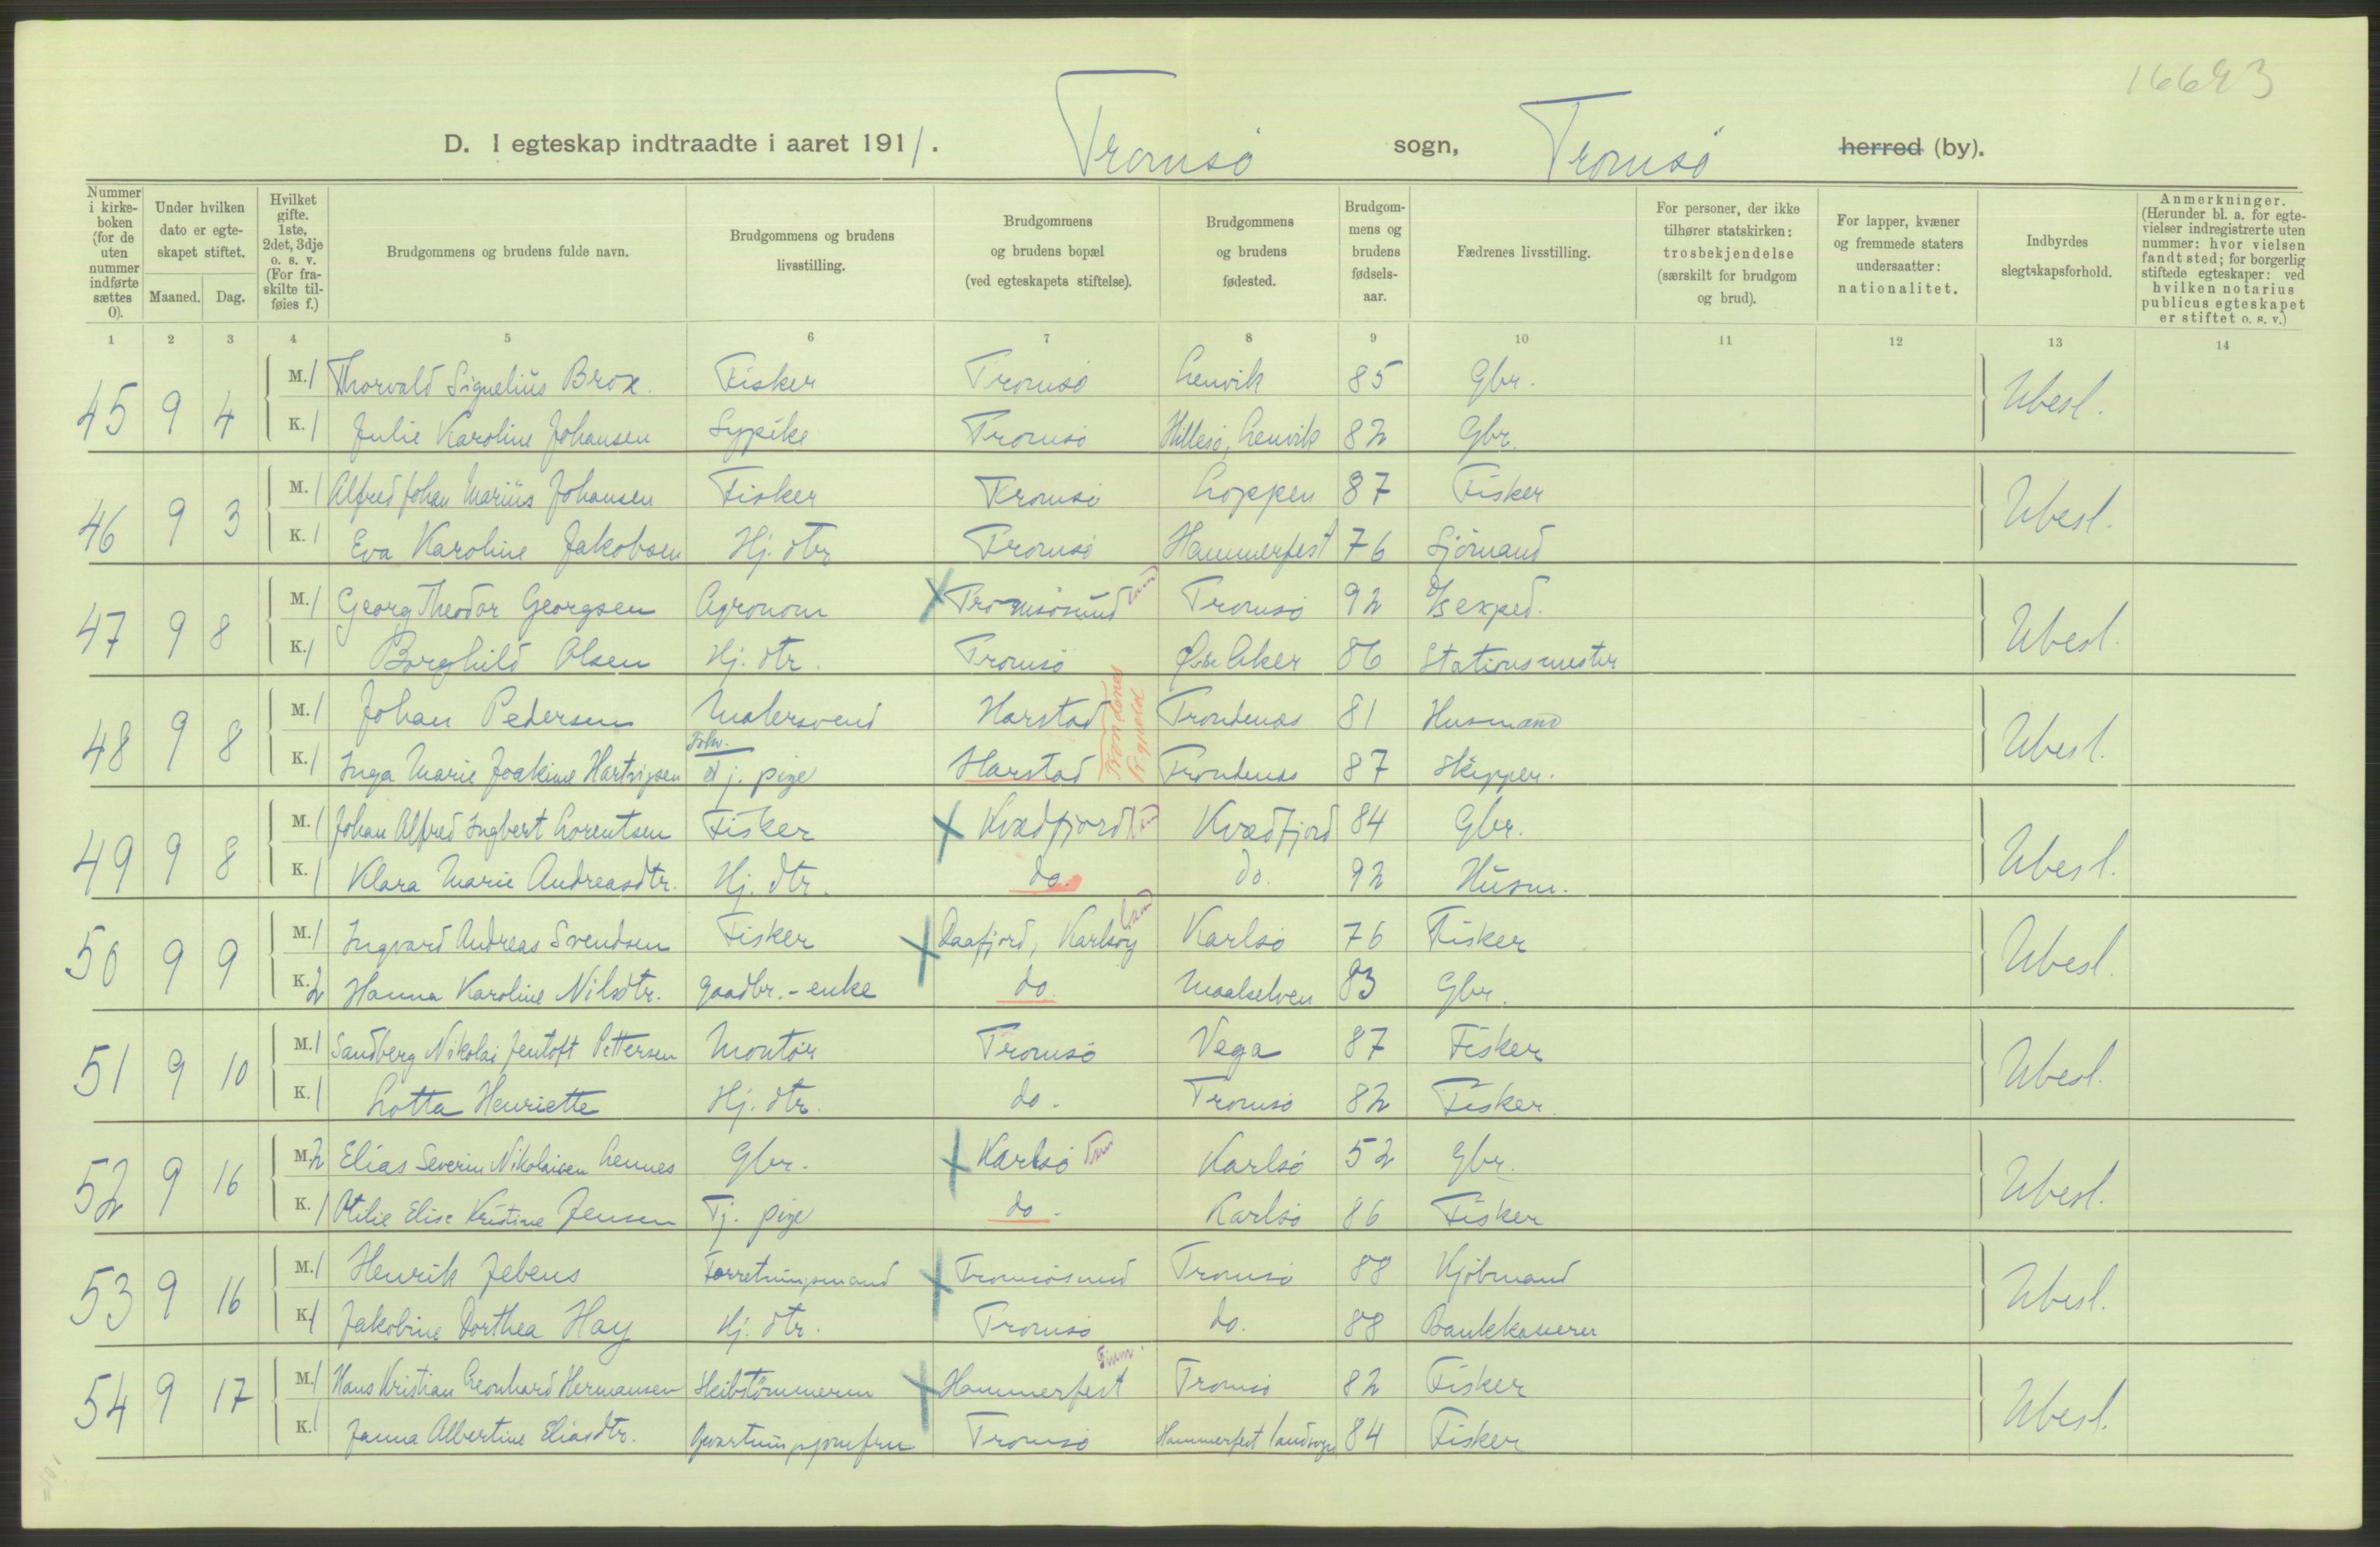 16693
D. I egteskap indtraadte i aaret 1911. Tromsö sogn, Tromsö herred (by).
Nummer i kirkeboken (for de uten nummer indførte sættes 0). Under hvilken dato er egteskapet stiftet. Maaned. Dag. Hvilket gifte. 1ste, 2det, 3dje o. s. v. (For fraskilte tilføies f.) Brudgommens og brudens fulde navn. Brudgommens og brudens livsstilling. Brudgommens og brudens bopæl (ved egteskapets stiftelse). Brudgommens og brudens fødested. Brudgommens og brudens fødselsaar. Fædrenes livsstilling. For personer, der ikke tilhører statskirken: trosbekjendelse (særskilt for brudgom og brud). For lapper, kvæner og fremmede staters undersaatter: nationalitet. Indbyrdes slegtskapsforhold. Anmerkninger. (Herunder bl. a. for egtevielser indregistrerte uten nummer: hvor vielsen fandt sted; for borgerlig stiftede egteskaper: ved hvilken notarius publicus egteskapet er stiftet o. s. v.)
1 2 3 4 5 6 7 8 9 10 11 12 13 14
45 9 4 M. 1 Thorvald Signelius Brox. Fisker Tromsö Lenvik 85 Gbr. Ubesl.
K. 1 Julie Karoline Johansen Sypike Tromsö Hillesö, Lenvik 82 Gbr.
46 9 3 M. 1 Alfred Johan Marius Johansen Fisker Tromsö Loppen 87 Fisker Ubesl.
K. 1 Eva Karoline Jakobsen Hj. dtr Tromsö Hammerfest 76 Sjömand
47 9 8 M. 1 Georg Theodor Georgsen Agronom Tromsösund Tromsö 92 D/s exped. Ubesl.
K. 1 Borghild Olsen Hj. dtr. Tromsö Østre Aker 86 Stationsmester
48 9 8 M. 1 Johan Pedersen Malersvend Harstad Trondenes 81 Husmand Ubesl.
K. 1 Inga Marie Joakime Hartvigsen Tj. pige Harstad Trondenes 87 Skipper.
Trondenes
49 9 8 M. 1 Johan Alfred Ingbert Lorentsen Fisker Kvædfjord Kvædfjord 84 Gbr. Ubesl.
K. 1 Klara Marie Andreasdtr. Hj. dtr. do. do. 92 Husm.
50 9 9 M. 1 Ingvard Andreas Svendsen Fisker Daafjord, Karlsöy Karlsö 76 Fisker Ubesl.
K. 2 Hanna Karoline Nilsdtr. gaadbr.-enke do. Maalselven 83 Gbr.
51 9 10 M. 1 Sandberg Nikolai Jentoft Pettersen Montör Tromsö Vega 87 Fisker Ubesl.
K. 1 Lotta Henriette Hj. dtr. do. Tromsö 82 Fisker.
52 9 16 M. 2 Elias Severin Nikolaisen Lennes Gbr. Karlsö Karlsö 52 Gbr. Ubesl.
K. 1 Otilie Elise Kristine Jensen Tj. pige do. Karlsö 86 Fisker
53 9 16 M. 1 Henrik Jebens Forretningsmand Tromsösund Tromsö 88 Kjöbmand Ubesl.
K. 1 Jakobine Dorthea Hay Hj. dtr. Tromsö do. 88 Bankkaserer
54 9 17 M. 1 Hans Kristian Leonhard Hermansen Skibstömmerm Hammerfest Finm. Tromsö 82 Fisker Ubesl.
K. 1 Janna Albertine Eliasdtr. Opvartningsjomfru Tromsö Hammerfest landsogn 84 Fisker